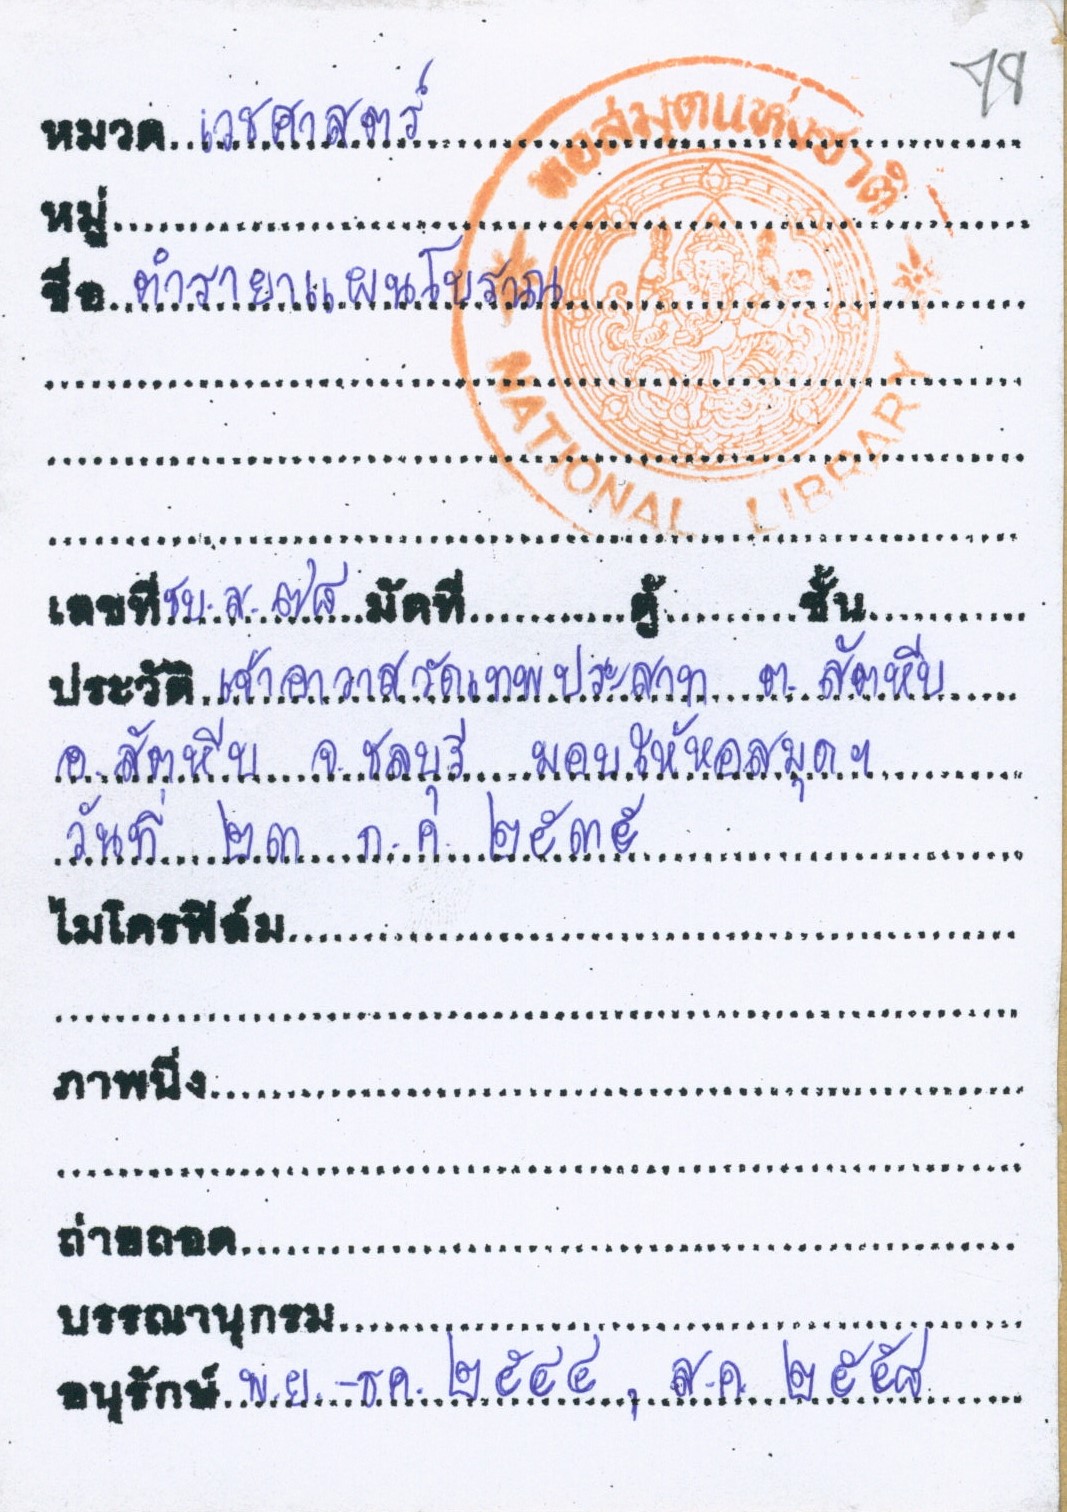 78
หอสมุดแห่งชาติ
NATIONAL LIBRARY
หมวด เวชศาสตร์
หมู่
ชื่อ ตำรายาแผนโบราณ
เลขที่ ชบ.ส. ๗๘ มัดที่ ตู้ ชั้น
ประวัติ เจ้าอาวาสวัดเทพประสาท ต. สัตหีบ
อ. สัตหีบ จ. ชลบุรี มอบให้หอสมุดฯ
วันที่ ๒๓ ก.ค. ๒๕๓๕
ไมโครฟิล์ม
ภาพนิ่ง
ถ่ายถอด
บรรณานุกรม
อนุรักษ์ พ.ย. - ธค. ๒๕๔๔ , ส.ค. ๒๕๕๘